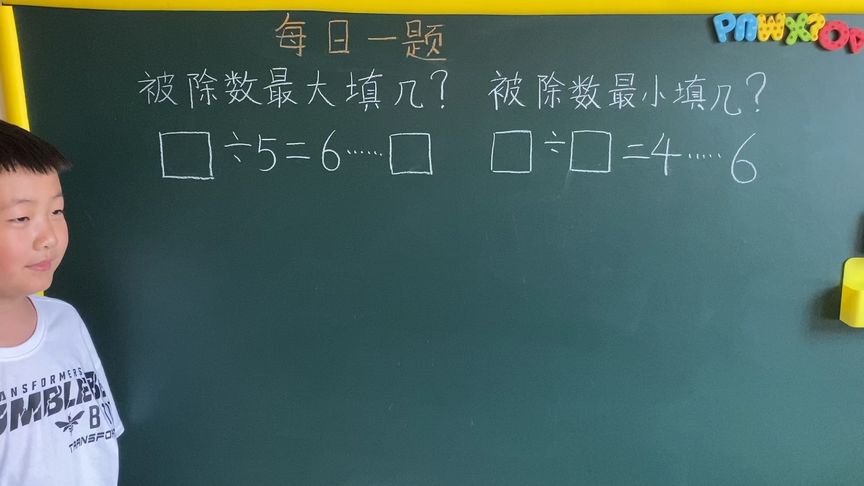 每日一题
被除数最大填几? 被除数最小填几?
□÷5=6……□ □÷□=4……6
PNWX?
TRANSFORMERS
BUMBLEBEE
TRANSFOR